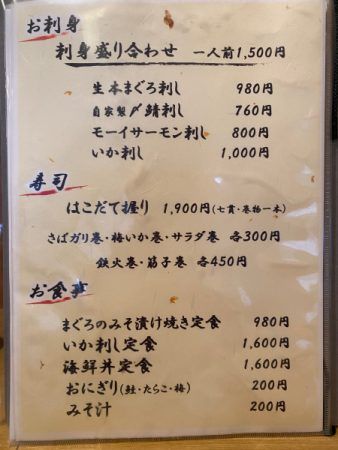 お刺身
刺身盛り合わせ 一人前1,500円
生本まぐろ刺し 980円
自家製〆鯖刺し 760円
モーイサーモン刺し 800円
いか刺し 1,000円
寿司
はこだて握り 1,900円(七貫・巻物一本)
さばガリ巻・梅いか巻・サラダ巻 各300円
鉄火巻・筋子巻 各450円
お食事
まぐろのみそ漬け焼き定食 980円
いか刺し定食 1,600円
海鮮丼定食 1,600円
おにぎり(鮭・たらこ・梅) 200円
みそ汁 200円